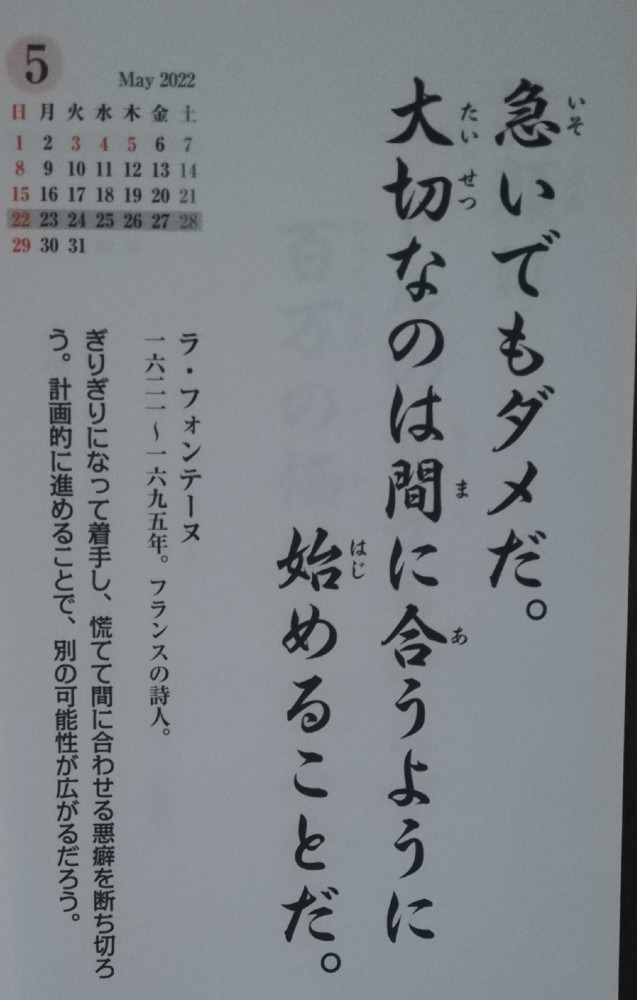 5
May 2022
日 月 火 水 木 金 土
1 2 3 4 5 6 7
8 9 10 11 12 13 14
15 16 17 18 19 20 21
22 23 24 25 26 27 28
29 30 31
急いでもダメだ。
大切なのは間に合うように
始めることだ。
ラ・フォンテーヌ
一六二一〜一六九五年。フランスの詩人。
ぎりぎりになって着手し、慌てて間に合わせる悪癖を断ち切ろ
う。計画的に進めることで、別の可能性が広がるだろう。